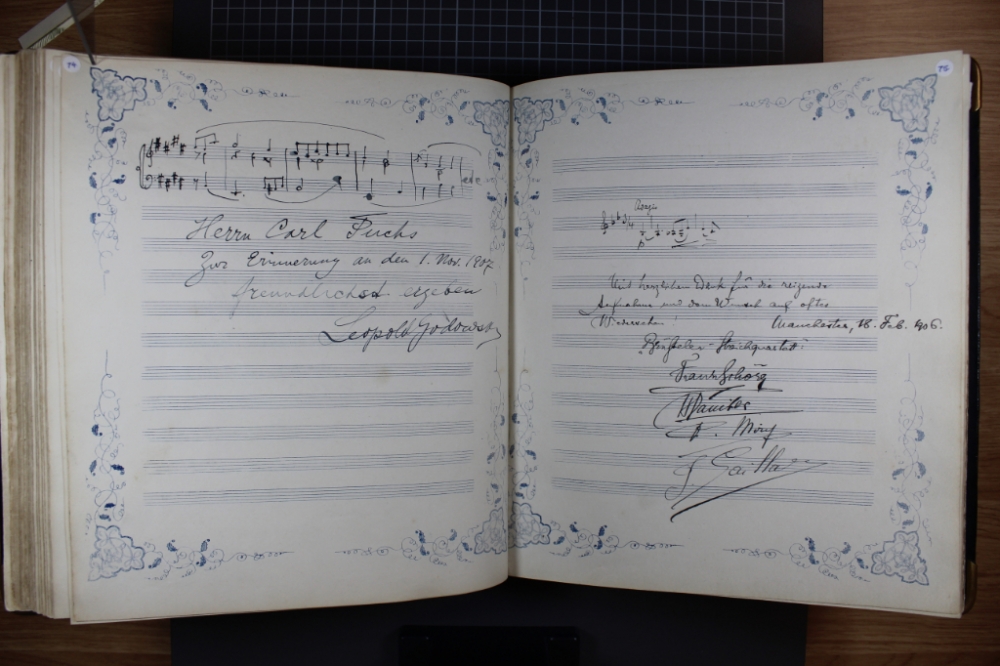 74
etc
Herrn Carl Fuchs
Zur Erinnerung an den 1. Nov. 1907
freundlichst ergeben
Leopold Godowsky
75
Adagio
Mit herzlichem Dank für die reizende
Aufnahme und dem Wunsch auf öftes
Wiedersehen!
Manchester, 16. Feb. 1906.
"Brüsseler-Streichquartett".
Franz Schörg
H Daucher
P. Miry
J Gaillard